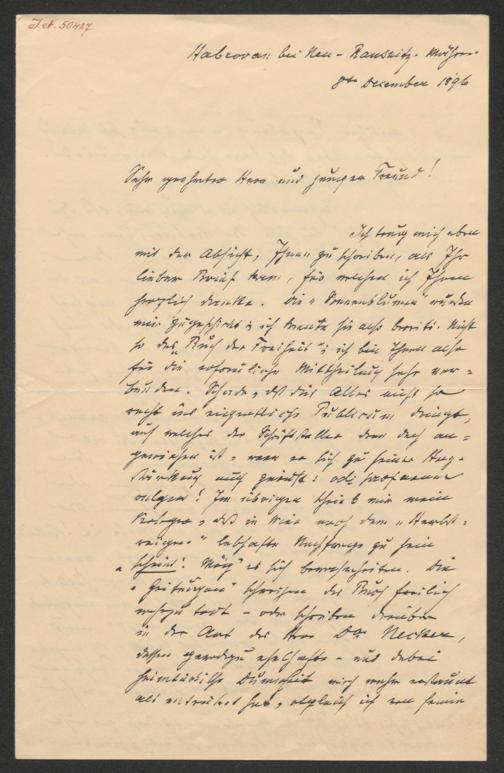 I.N. 50427
Habrovan bei Neu-Rausnitz. Mähren
8ten December 1896
Sehr geehrter Herr und junger Freund!
Ich trug mich eben
mit der Absicht, Ihnen zu schreiben, als Ihr
lieber Brief kam, für welchen ich Ihnen
herzlich danke. Die „Sonnenblumen" wurden
mir zugeschickt & ich kannte sie also bereits. Nicht
so das „Buch der Freiheit"; ich bin Ihnen also
für die erfreuliche Mittheilung sehr ver-
bunden. Schade, daß das Alles nicht so
recht ins eigentliche Publicum dringt,
auf welches der Schriftsteller denn doch an-
gewiesen ist – wenn er sich zu seiner
auch zuruft: odi profanum
vulgus! Im übrigen theilt mir mein
Verleger, daß in Wien nach dem „Herbst-
reigen" lebhafte Nachfrage zu sein
scheint. Mög' es sich bewahrheiten. Die
„Zeitungen" schweigen das Buch freilich
todt – oder schreiben darüber
in der Art des Herrn Dr Necker,
dessen geradezu ekelhafte – und dabei
heimtückische Dummheit mich mehr erstaunt
als entrüstet hat, obgleich ich von seiner